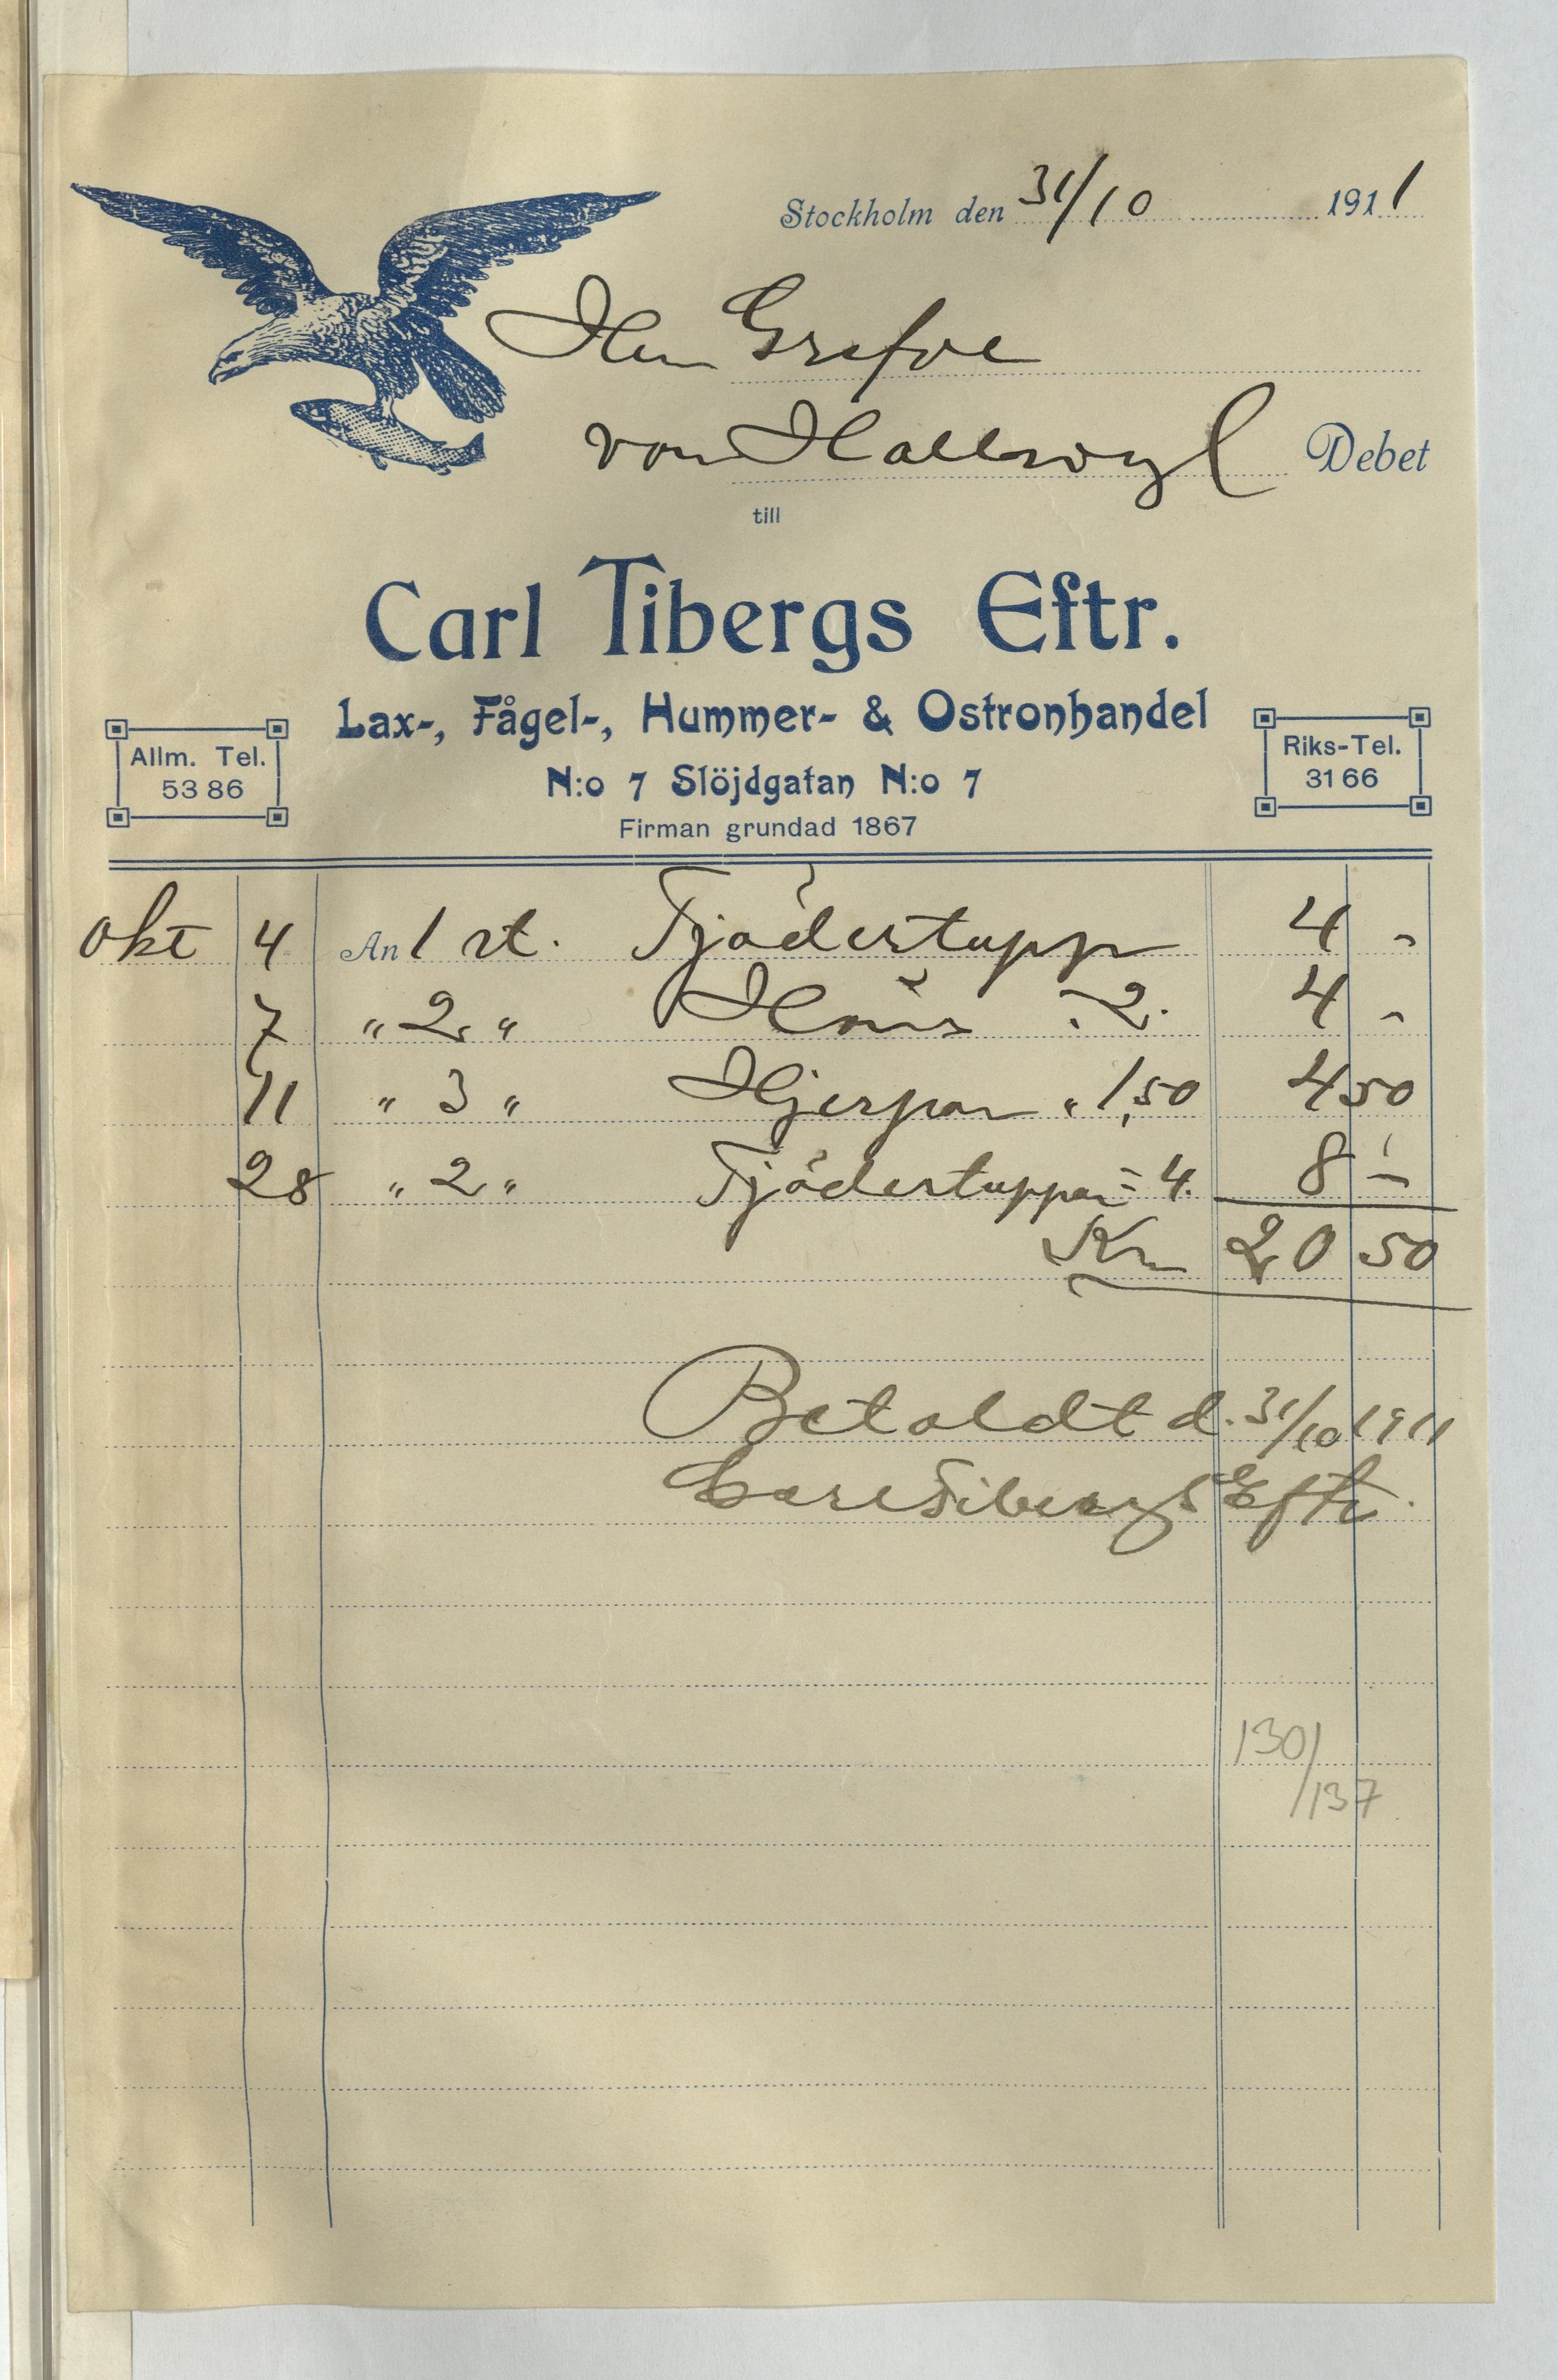 Stockholm den 31/10 1911
Herr Grefve
von Hallwyl Debet
till
Carl Tibergs Eftr.
Lax-, Fågel-, Hummer- & Ostronhandel
Allm. Tel.
53 86
Riks-Tel.
31 66
N:o 7 Slöjdgatan N:o 7
Firman grundad 1867
Okt 4 An 1 st. Tjädertupp 4 -
7 " 2 " Höns 2. 4 -
11 " 3 " Hjerpar " 1,50 4 50
28 " 2 " Tjädertuppar 4. 8 -
Kr 20 50
Betaldt d. 31/10 1911
Carl Tibergs Eftr.
130/
/137